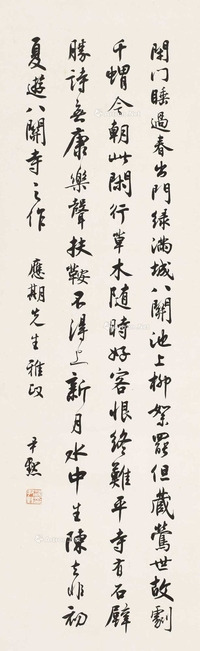 閉門睡過春出門綠滿城八關池上柳絮罷但藏鶯世故劇
千蝟今朝此閑行草木隨時好客恨終難平寺有石壁
勝詩無康樂聲扶鞍不得上新月水中生陳去非初
夏遊八關寺之作
應期先生雅政
尹默